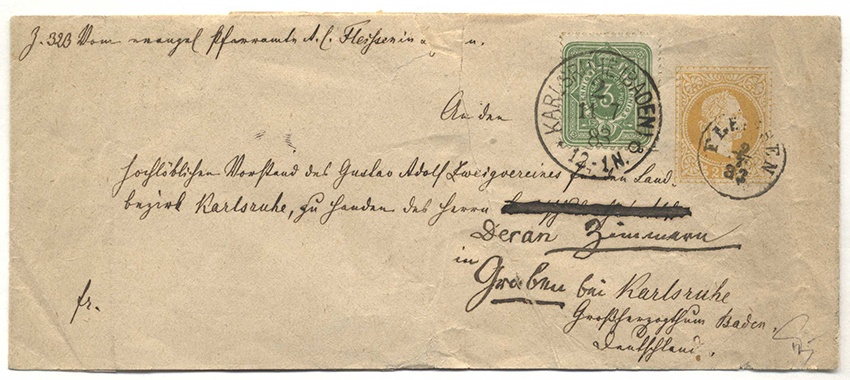 Z. 323 Vom evangel. Pfarramte A. C. Fleissen in
An den
hochlöblichen Vorstand des Gustav Adolf Zweigvereines für den Land-
bezirk Karlsruhe, zu Handen des Herrn
Decan Zimmern
in
Graben bei Karlsruhe
Großherzogthum Baden.
Deutschland.
fr.
KARLSRUHE (BADEN)
3
11 7
83
12-1 N.
FLEISSEN